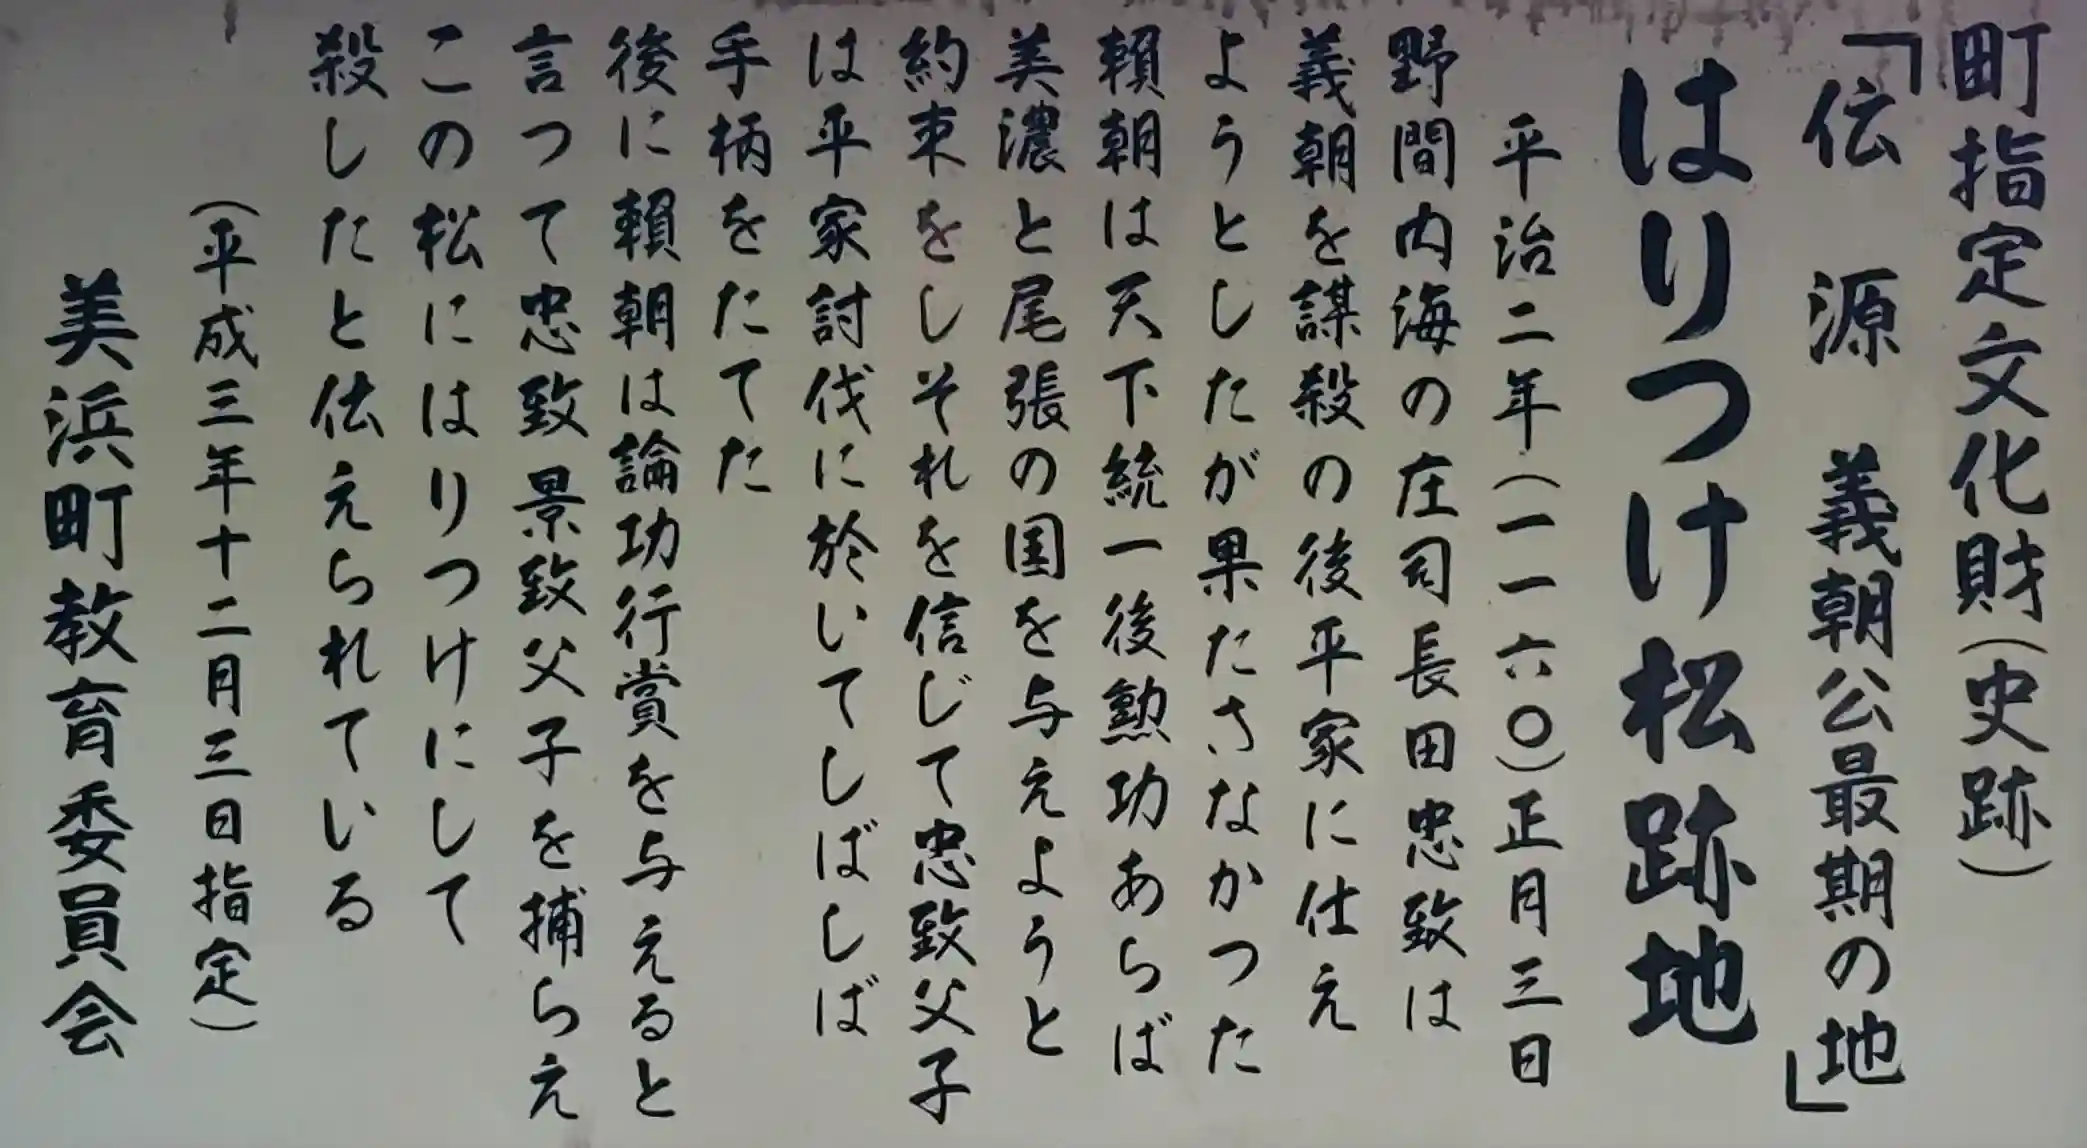 町指定文化財(史跡)
「伝 源 義朝公最期の地」
はりつけ松跡地
平治二年(一一六〇)正月三日
野間内海の庄司長田忠致は
義朝を謀殺の後平家に仕え
ようとしたが果たさなかつた
頼朝は天下統一後勲功あらば
美濃と尾張の国を与えようと
約束をしそれを信じて忠致父子
は平家討伐に於いてしばしば
手柄をたてた
後に頼朝は論功行賞を与えると
言つて忠致景致父子を捕らえ
この松にはりつけにして
殺したと伝えられている
(平成三年十二月三日指定)
美浜町教育委員会